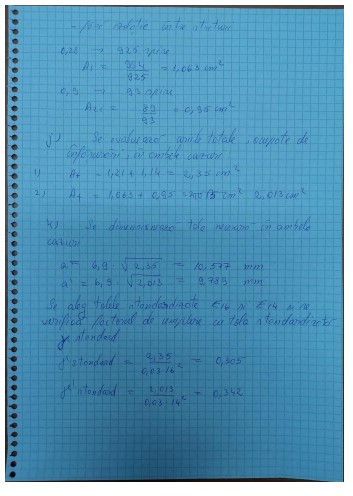 - fără izolație între straturi
0,28 → 925 spire
A₁ = 984/925 = 1,063 cm²
0,3 → 92 spire
A₂ = 89/92 = 0,95 cm²
j) Se evaluează ariile totale, ocupate de
înfășurări, în ambele cazuri
1) A_t = 1,21 + 1,14 = 2,35 cm²
2) A_t = 1,063 + 0,95 = cm² 2,013 cm²
k) Se dimensionează tola necesară în ambele
cazuri
a = 6,9 · √2,35 = 10,577 mm
a' = 6,9 · √2,013 = 9,789 mm
Se aleg tolele standardizate E14 și E14 și se
verifică factorul de umplere cu tola standardizată
γ standard
γ' standard = 2,35/0,03·14² = 0,305
γ'' standard = 2,013/0,03·14² = 0,342